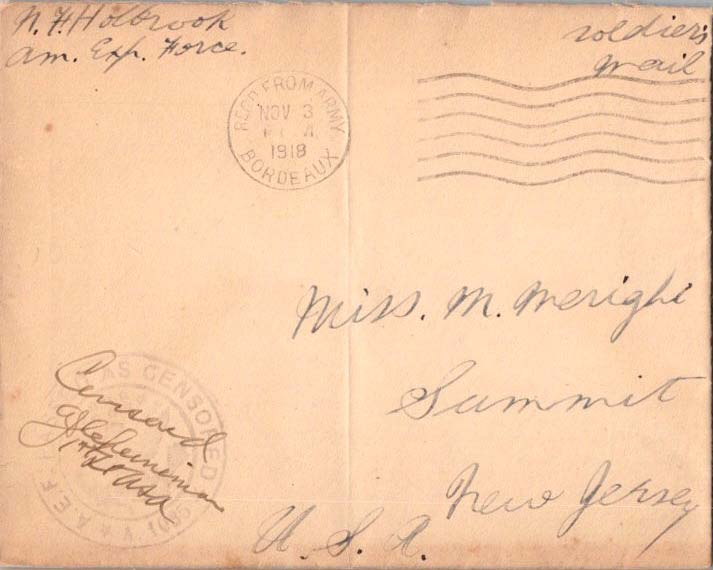 N. F. Holbrook
Am. Exp. Force.
Soldier's
Mail
REC'D FROM ARMY
NOV 3
1918
BORDEAUX
Miss. M. Weright
Summit
New Jersey
U. S. A.
AS CENSORED
A.E.F.
Censored
USA